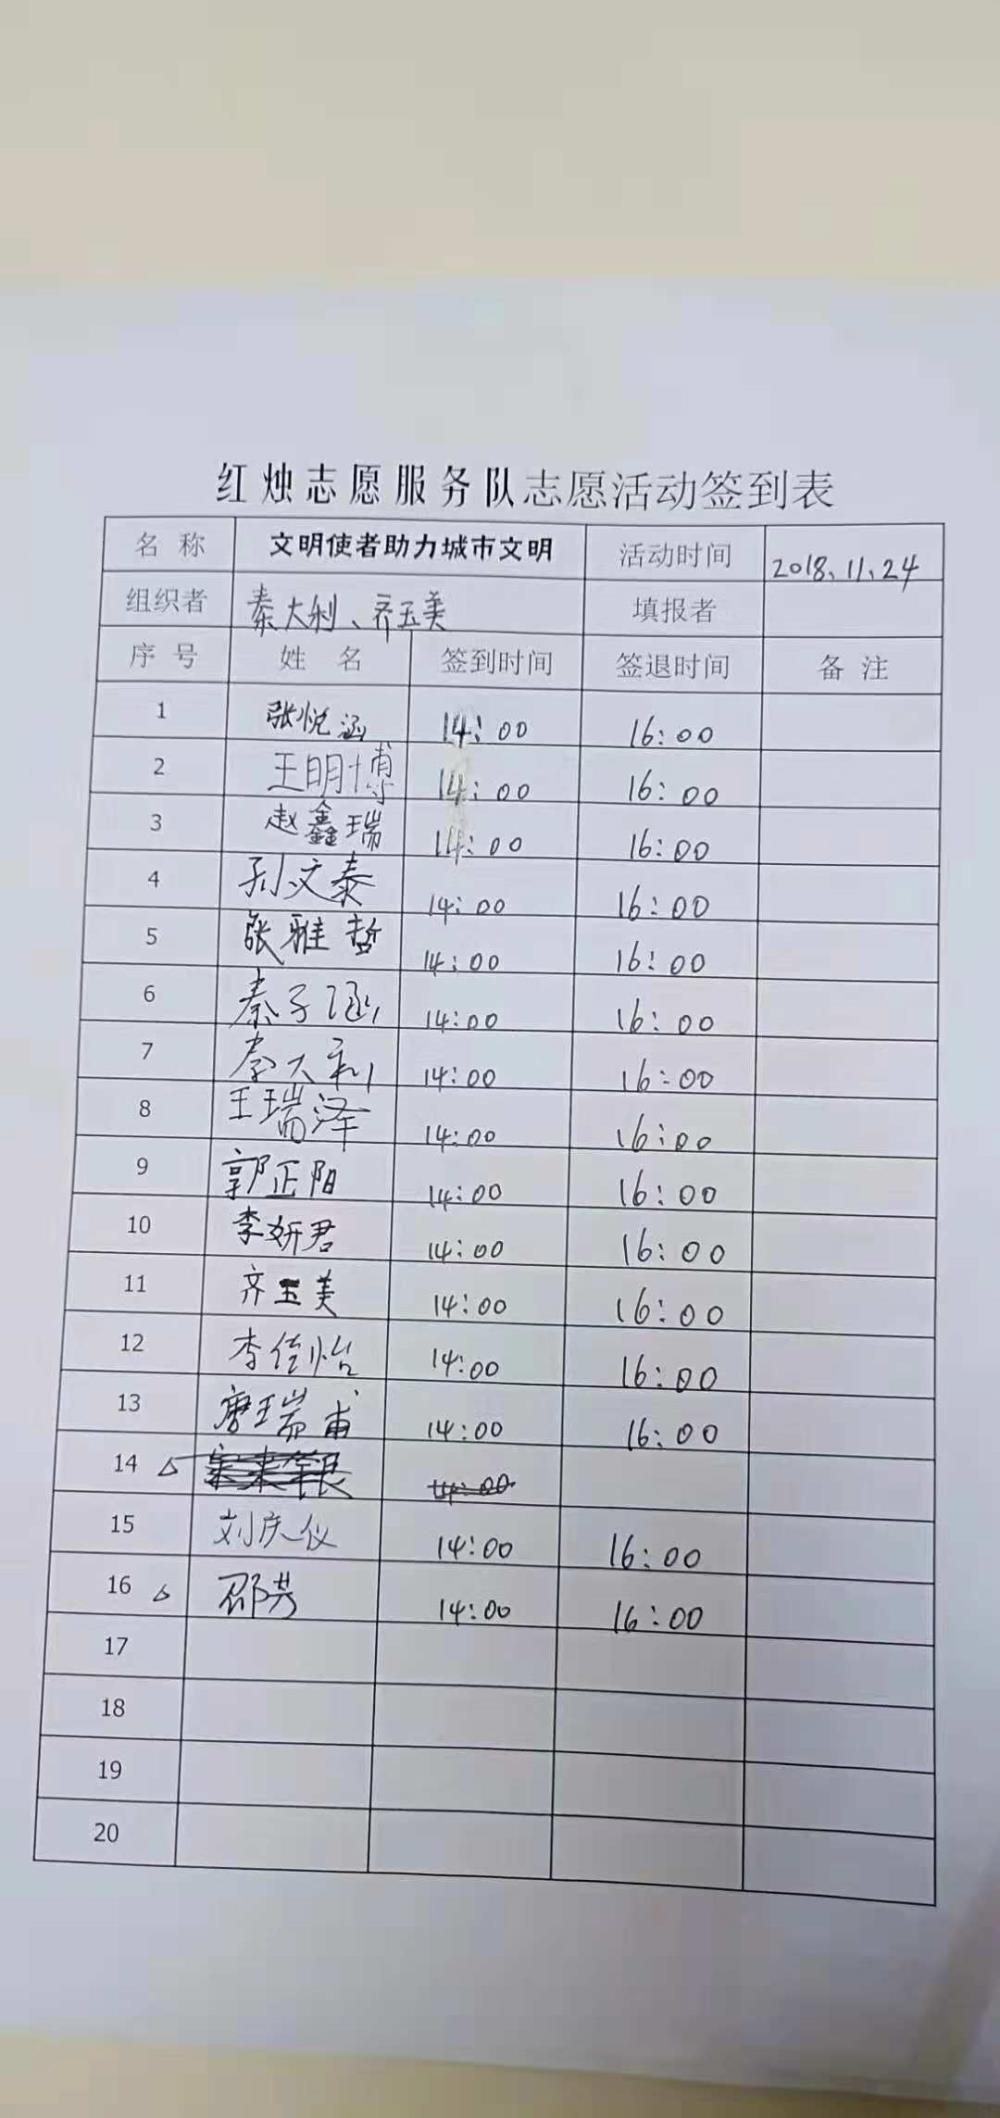 红烛志愿服务队志愿活动签到表
名称 文明使者助力城市文明 活动时间 2018、11、24
组织者 秦大利、齐玉美 填报者
序号 姓名 签到时间 签退时间 备注
1 张悦涵 14:00 16:00
2 王明博 14:00 16:00
3 赵鑫瑞 14:00 16:00
4 孙文泰 14:00 16:00
5 张雅哲 14:00 16:00
6 秦子涵 14:00 16:00
7 秦大利 14:00 16:00
8 王瑞泽 14:00 16:00
9 郭正阳 14:00 16:00
10 李妍君 14:00 16:00
11 齐玉美 14:00 16:00
12 李佳怡 14:00 16:00
13 唐瑞甫 14:00 16:00
14 △ 14:00
15 刘庆仪 14:00 16:00
16 △ 邵芳 14:00 16:00
17
18
19
20